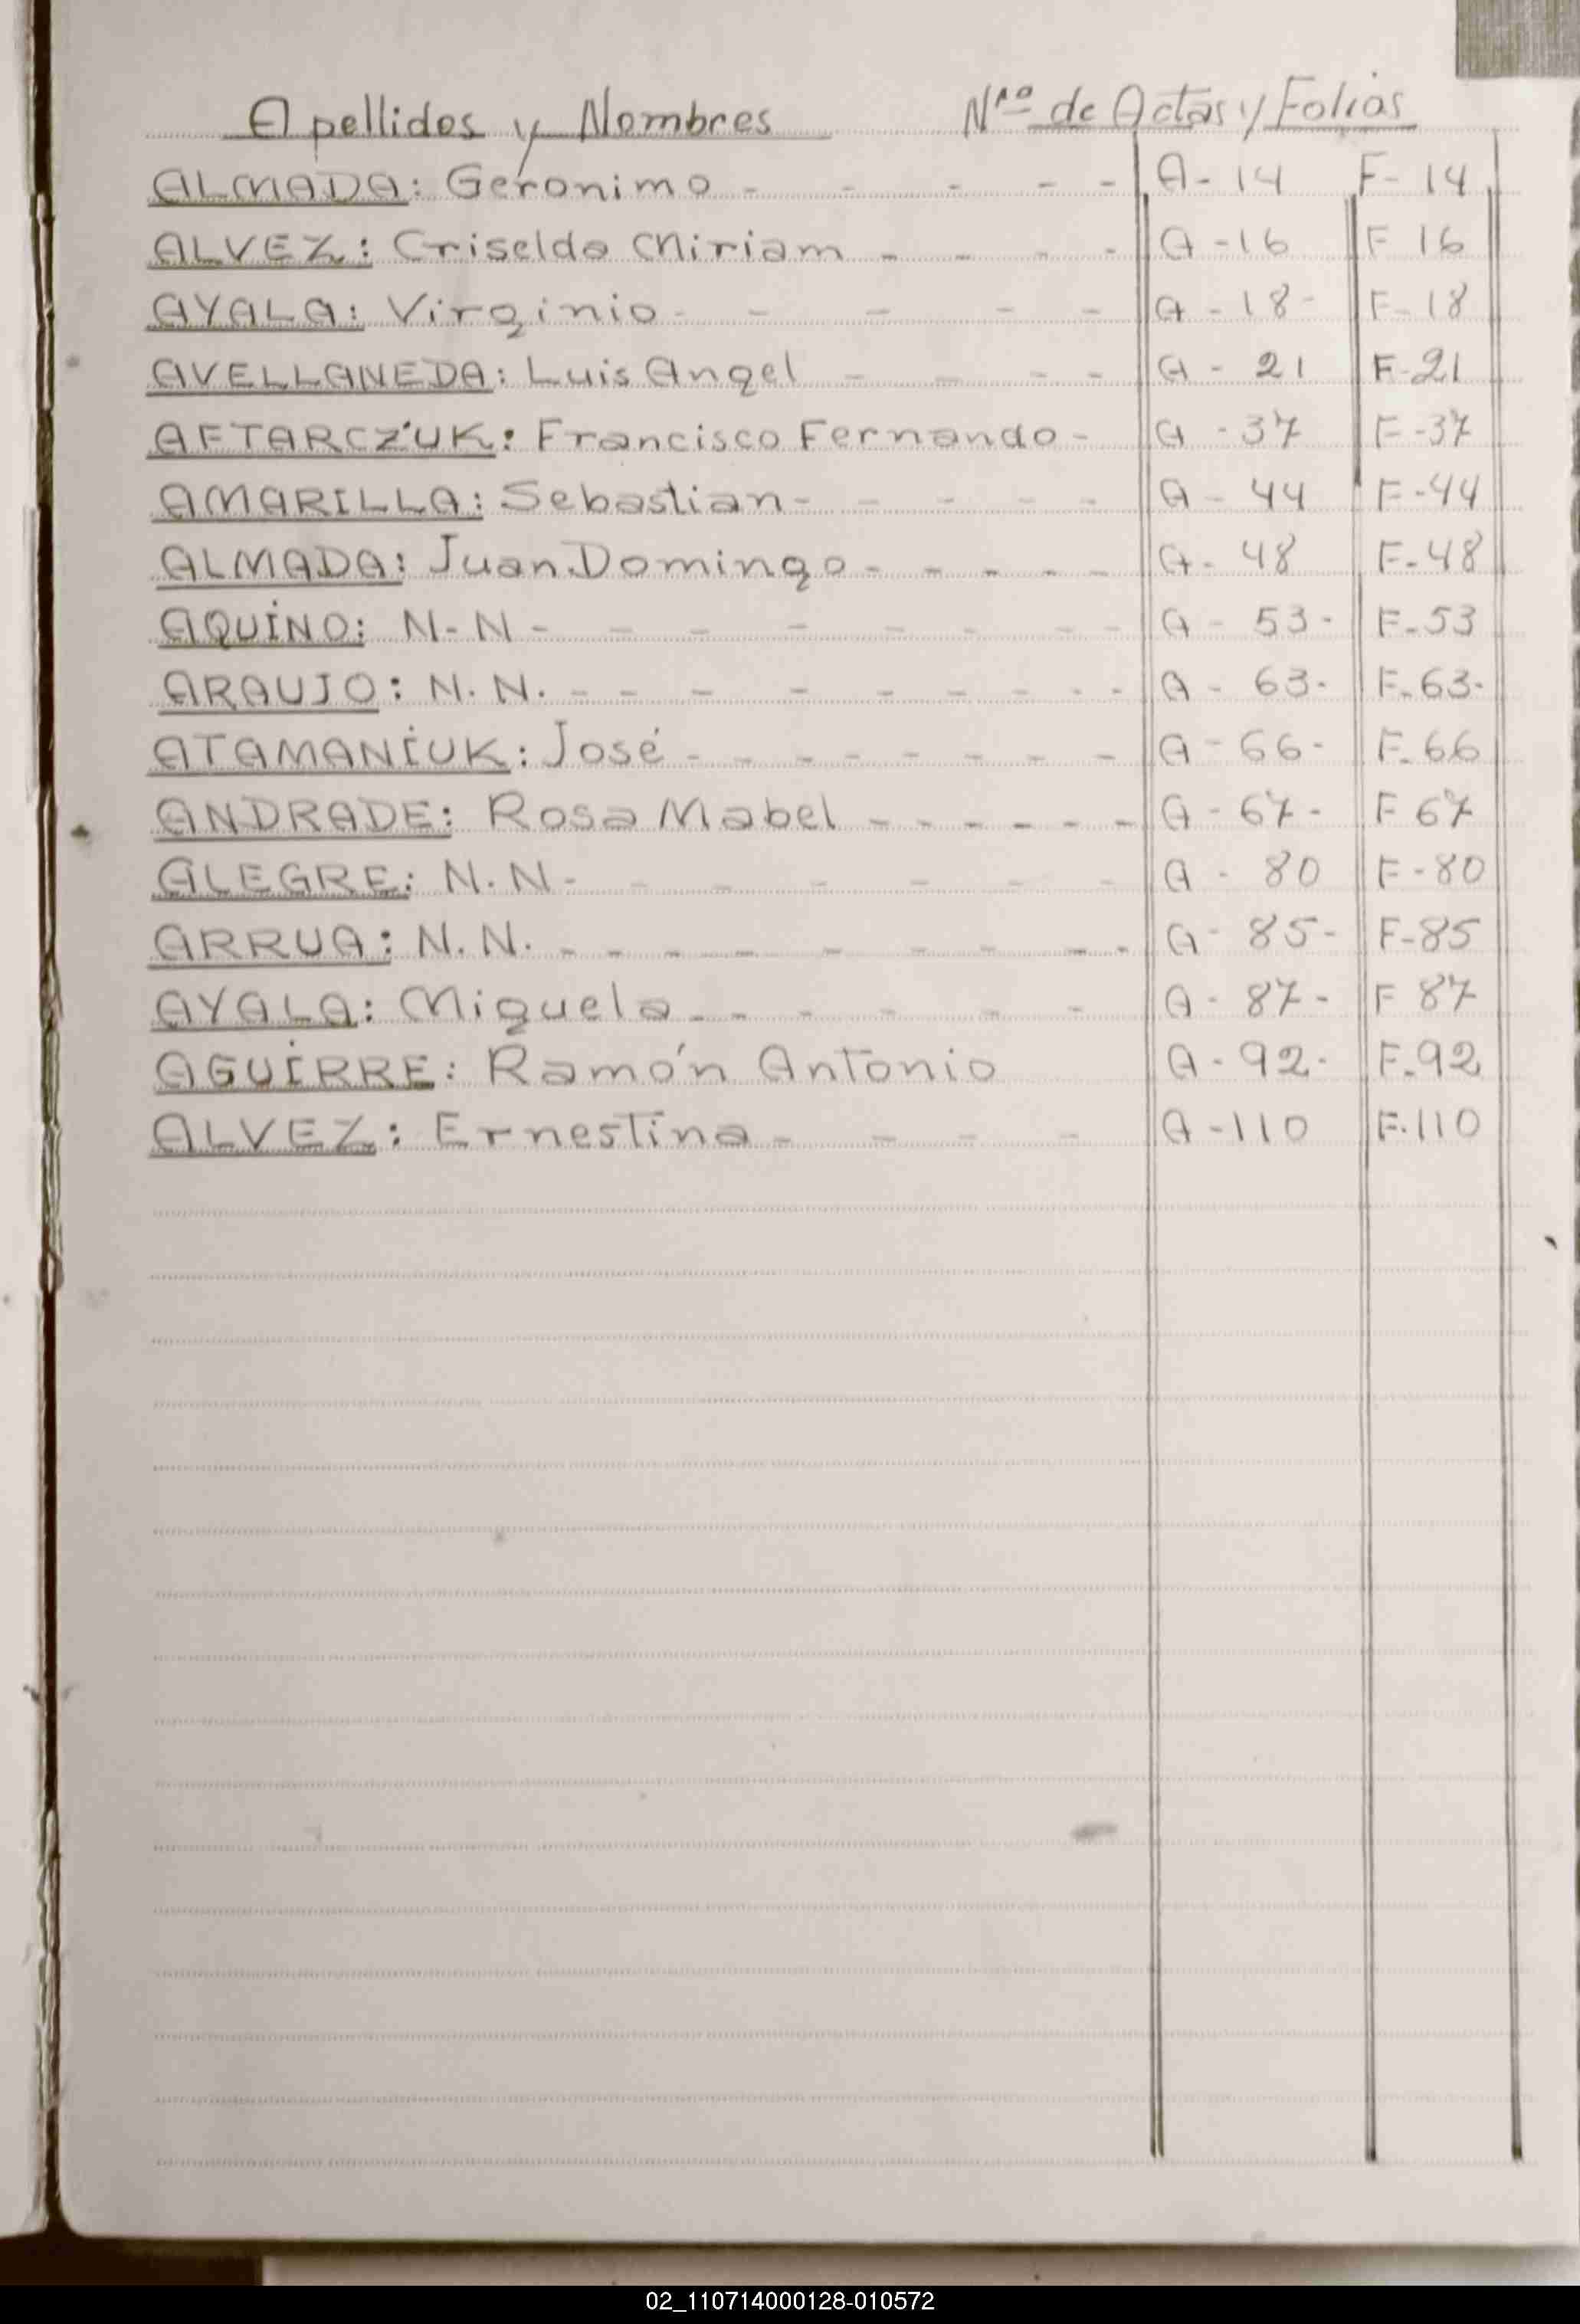 Apellidos y Nombres Nro de Actas y Folios
ALMADA: Geronimo - - - - - A-14 F-14
ALVEZ: Criselda Miriam - - - - A-16 F 16
AYALA: Virginio - - - - - A-18- F-18
AVELLANEDA: Luis Angel - - - - A-21 F-21
AFTARCZUK: Francisco Fernando - A-37 F-37
AMARILLA: Sebastian - - - - - A-44 F-44
ALMADA: Juan Domingo - - - - - A-48 F-48
AQUINO: N-N - - - - - - - - A-53- F-53
ARAUJO: N.N. - - - - - - - - - A-63- F-63-
ATAMANIUK: José - - - - - - - - A-66- F-66
ANDRADE: Rosa Mabel - - - - - - A-67- F 67
ALEGRE: N.N- - - - - - - A-80 F-80
ARRUA: N.N. - - - - - - - - - A-85- F-85
AYALA: Miguela - - - - - - A-87- F 87
AGUIRRE: Ramón Antonio A-92- F-92
ALVEZ: Ernestina - - - - A-110 F-110
02_110714000128-010572